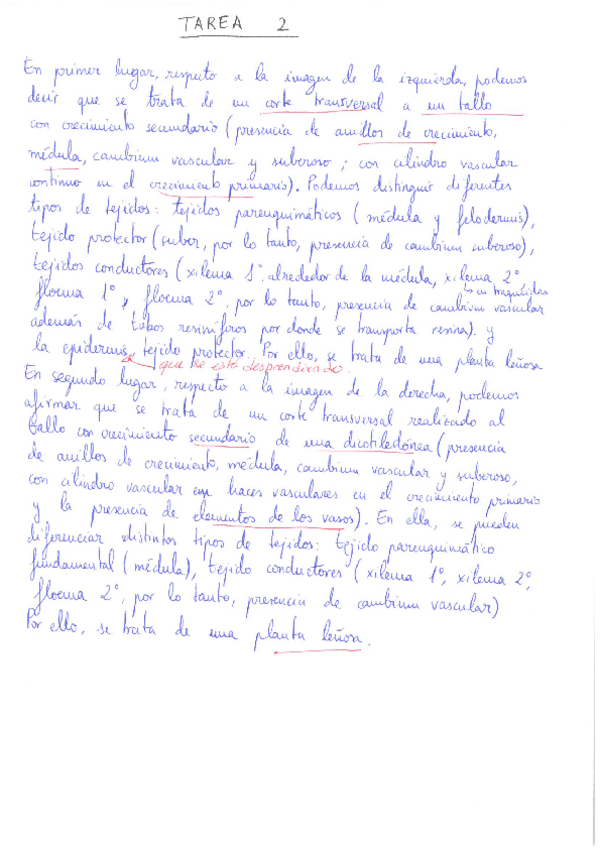 TAREA 2
En primer lugar, respecto a la imagen de la izquierda, podemos
decir que se trata de un corte transversal a un tallo
con crecimiento secundario (presencia de anillos de crecimiento,
médula, cambium vascular y suberoso; con cilindro vascular
continuo en el crecimiento primario). Podemos distinguir diferentes
tipos de tejidos: tejidos parenquimáticos (médula y felodermis),
tejido protector (suber, por lo tanto, presencia de cambium suberoso),
tejidos conductores (xilema 1º alrededor de la médula, xilema 2º
↳ con traqueidas
floema 1º y floema 2º, por lo tanto, presencia de cambium vascular
además de tubos resiníferos por donde se transporta resina). y
la epidermis, tejido protector. Por ello, se trata de una planta leñosa
que se está desprendiendo.
En segundo lugar, respecto a la imagen de la derecha, podemos
afirmar que se trata de un corte transversal realizado al
tallo con crecimiento secundario de una dicotiledónea (presencia
de anillos de crecimiento, médula, cambium vascular y suberoso,
con cilindro vascular con haces vasculares en el crecimiento primario
y la presencia de elementos de los vasos). En ella, se pueden
diferenciar distintos tipos de tejidos: tejido parenquimático
fundamental (médula), tejido conductores (xilema 1º, xilema 2º,
floema 2º, por lo tanto, presencia de cambium vascular)
Por ello, se trata de una planta leñosa.